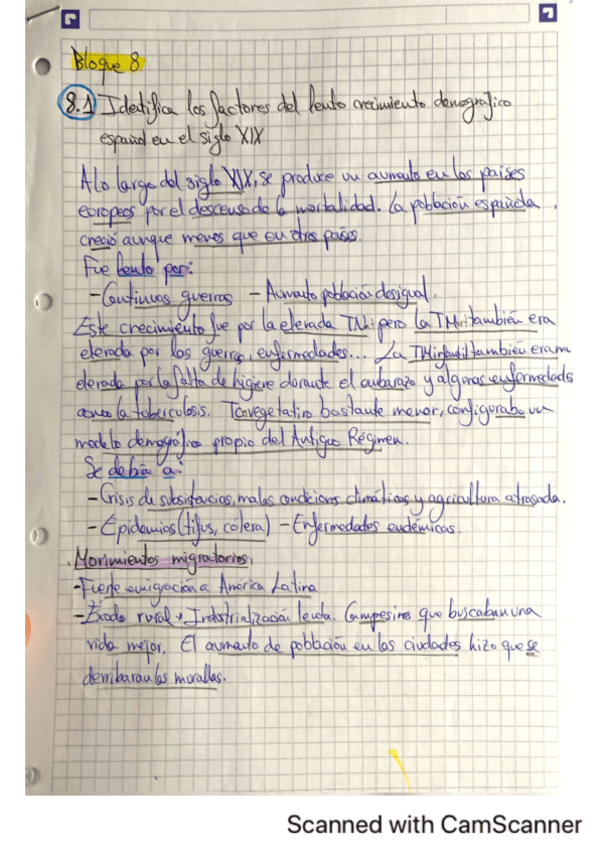 Bloque 8
8.1 Identifica los factores del lento crecimiento demografico
español en el siglo XIX
A lo largo del siglo XIX, se produce un aumento en los países
europeos por el descenso de la mortalidad. La población española
creció aunque menos que en otros países.
Fue lento por:
-Continuas guerras - Aumento población desigual.
Este crecimiento fue por la elevada TN, pero la TM también era
elevada por las guerras, enfermedades... La TM infantil también era
elevada por la falta de higiene durante el embarazo y algunas enfermedades
como la tuberculosis. vegetativo bastante menor, configuraba un
modelo demográfico propio del Antiguo Régimen.
Se debía a:
-Crisis de subsistencias, malas condiciones climáticas y agricultura atrasada.
-Epidemias (tifus, cólera) - Enfermedades endémicas.
Movimientos migratorios.
-Fuerte emigración a América Latina
-Éxodo rural → Industrialización lenta. Campesinos que buscaban una
vida mejor. El aumento de población en las ciudades hizo que se
derribaran las murallas.
Scanned with CamScanner